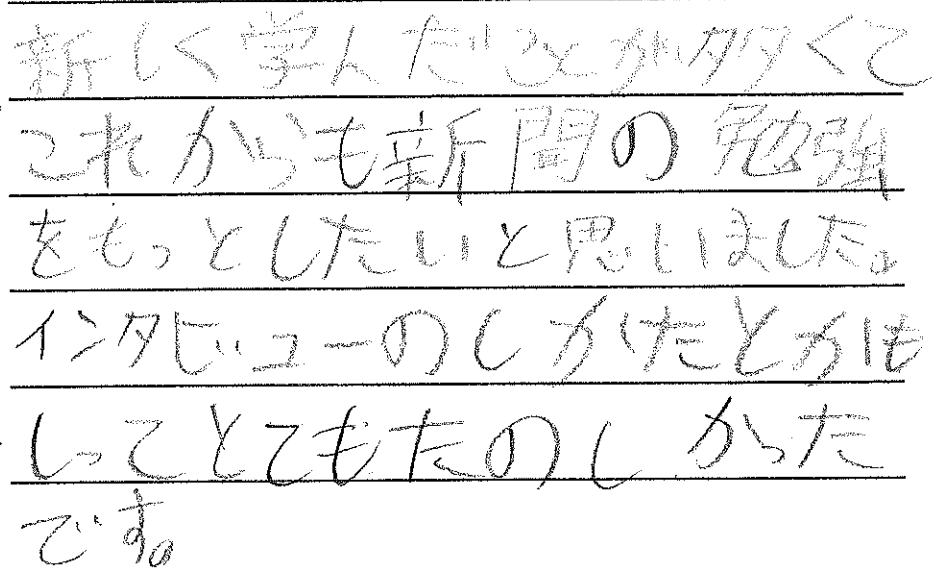 新しく学んだことが多くて
これからも新聞の勉強
をもっとしたいと思いました。
インタビューのしかたとかも
しってとてもたのしかった
です。